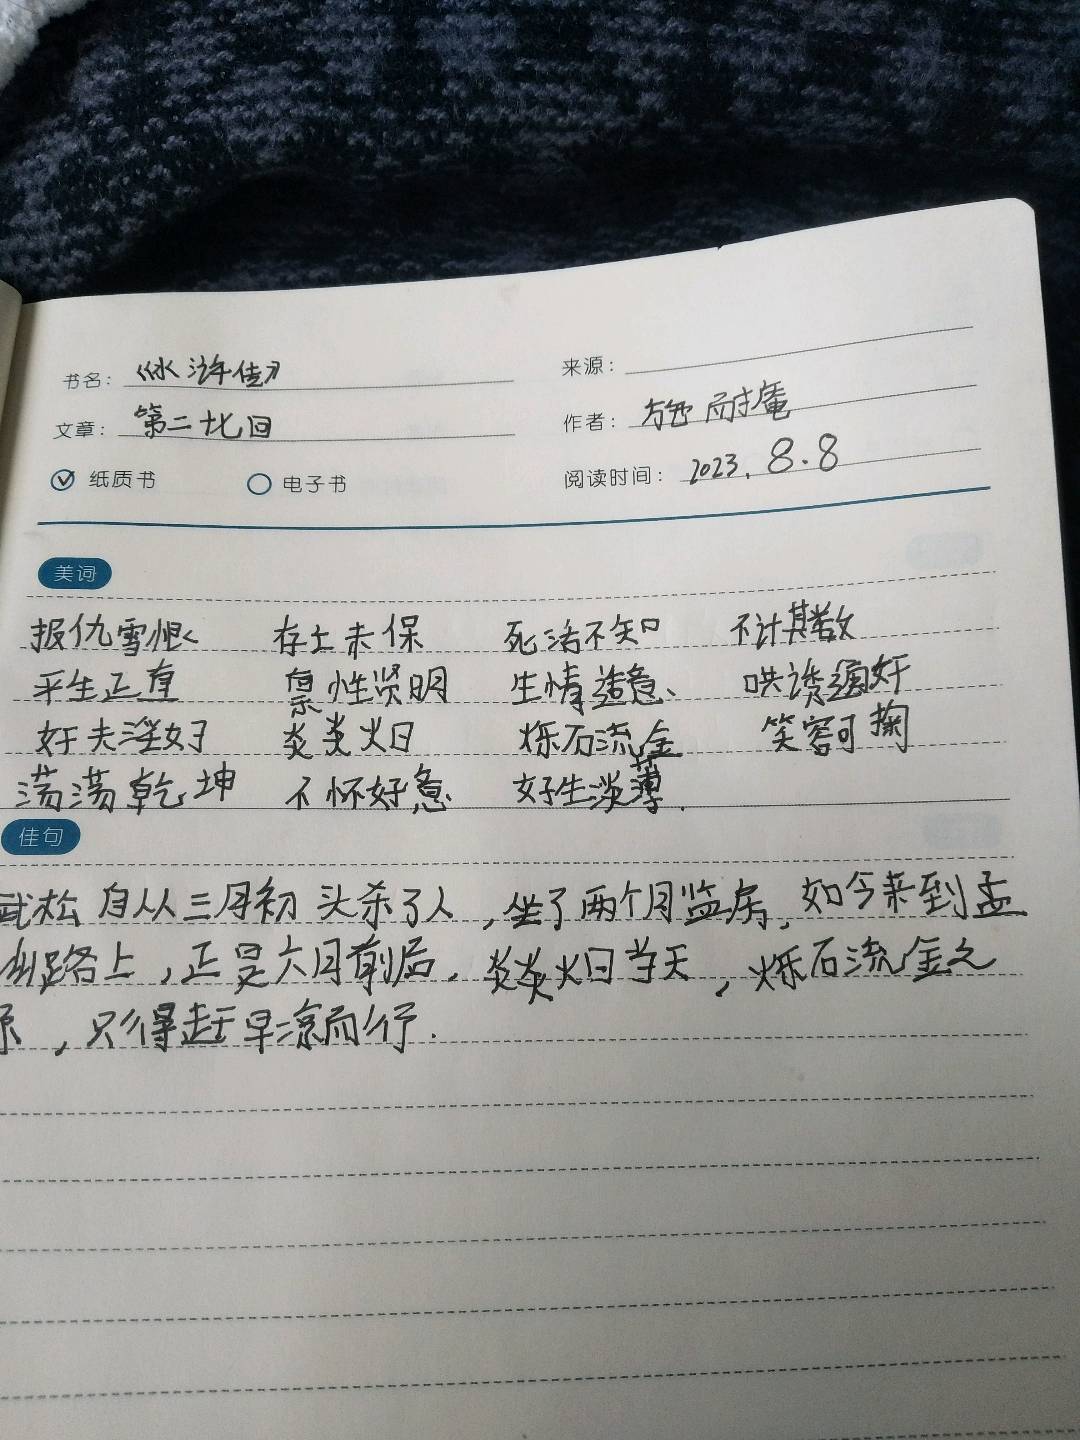 书名：《水浒传》
来源：
文章：第二十七回
作者：施耐庵
纸质书 电子书
阅读时间：2023.8.8
美词
报仇雪恨 存亡未保 死活不知 不计其数
平生正直 禀性贤明 生情造意、哄诱通奸
奸夫淫妇 炎炎火日 烁石流金 笑容可掬
荡荡乾坤 不怀好意 好生淡薄.
佳句
武松自从三月初头杀了人，坐了两个月监房，如今来到孟
州路上，正是六月前后，炎炎火日当天，烁石流金之
际，只得赶早凉而行.